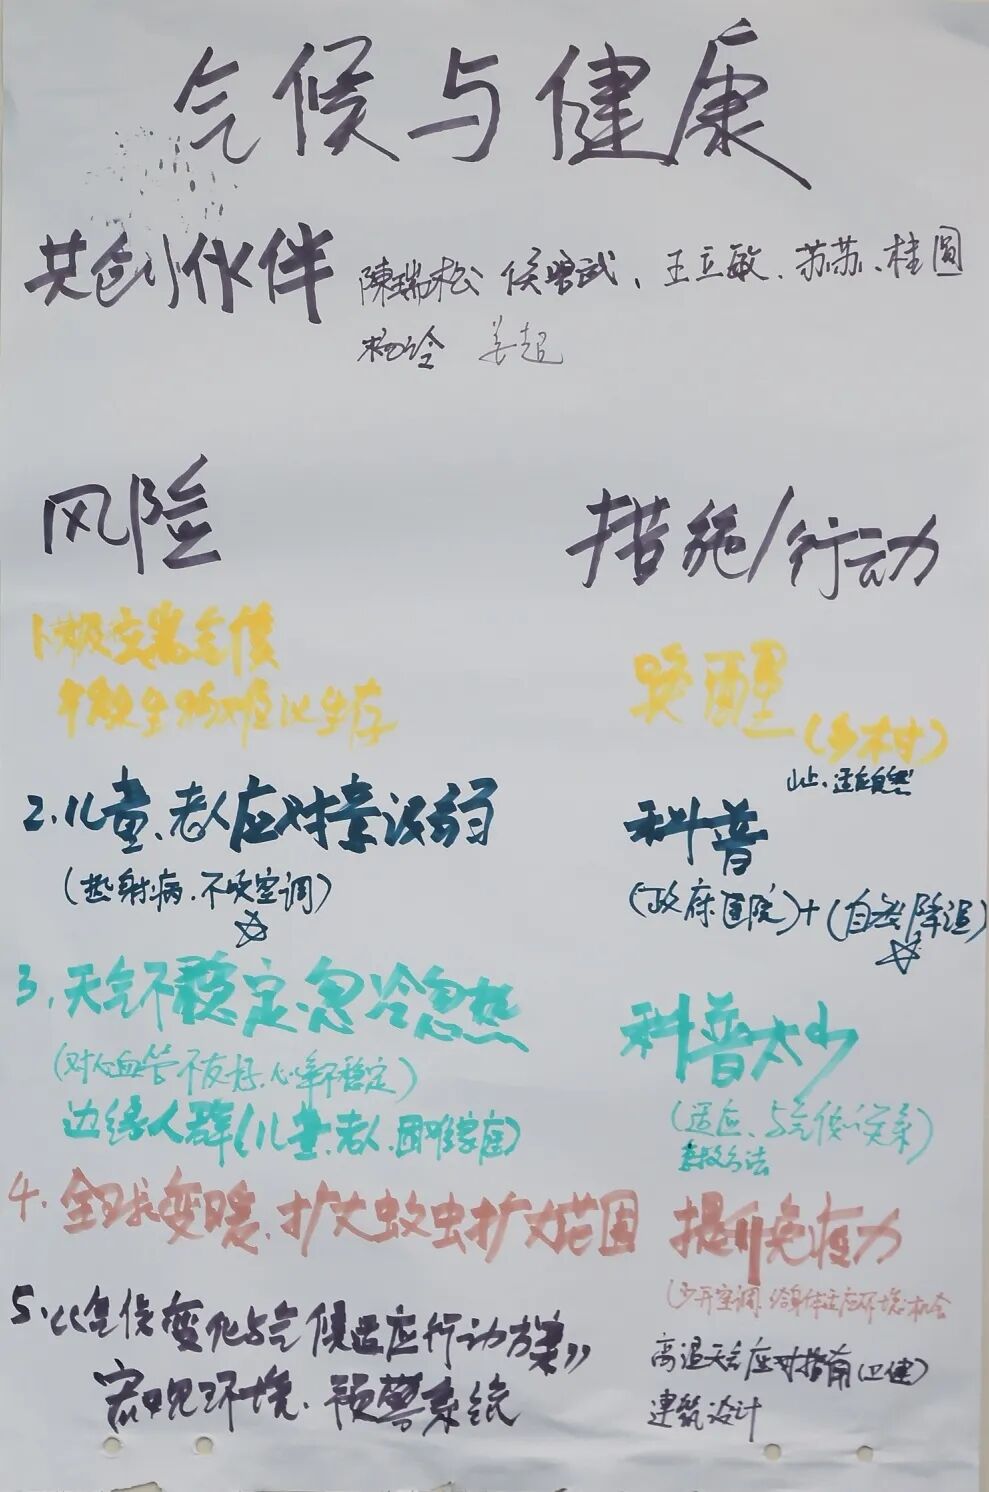 气候与健康
共创伙伴 陳瑞松 侯学武、王立敏、苏苏、桂圆
杨冷 姜超
风险
措施/行动
1、极端气候
微生物难以生存
唤醒
(乡村)
2、儿童、老人应对意识弱
(热射病、不吹空调)
适应自然
科普
(政府医院)+(自然降温)
3、天气不稳定、忽冷忽热
(对心血管不友好、心率不稳定)
边缘人群(儿童、老人、困难家庭)
科普太少
(适应、与气候的关系)
急救方法
4、全球变暖、扩大蚊虫扩大范围
提升免疫力
(少开空调、给身体适应环境机会
5、《气候变化与气候适应行动方案》
宏观环境、预警系统
高温天气应对指南(卫健)
建筑设计